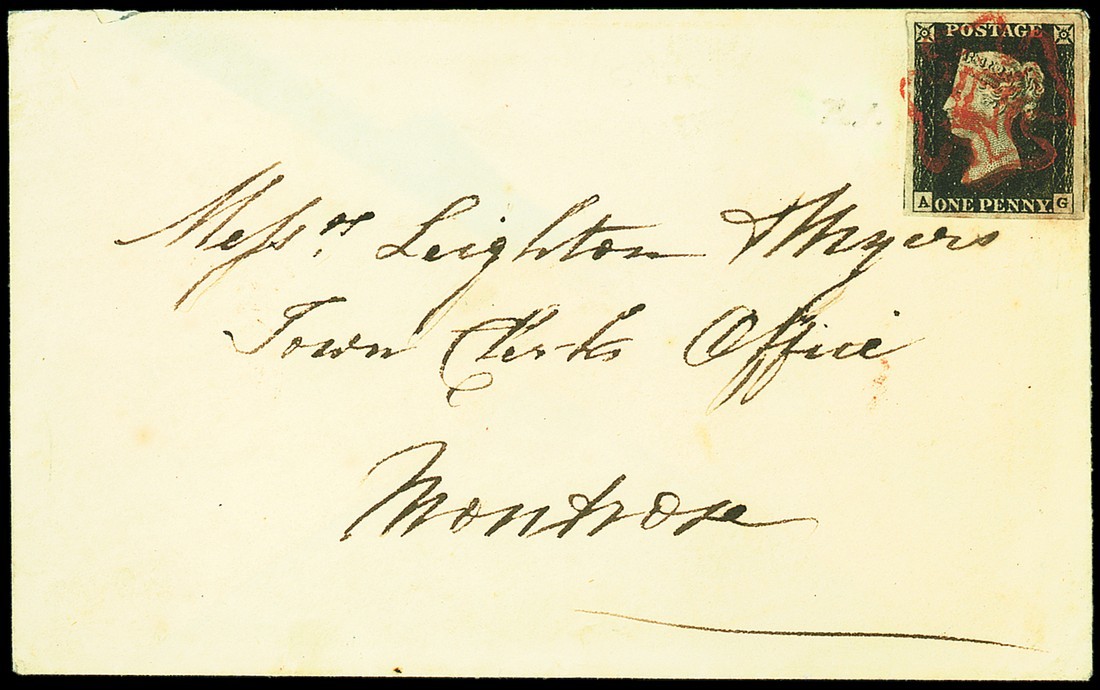 POSTAGE
A ONE PENNY G
Messrs Leighton & Myers
Town Clerks Office
Montrose